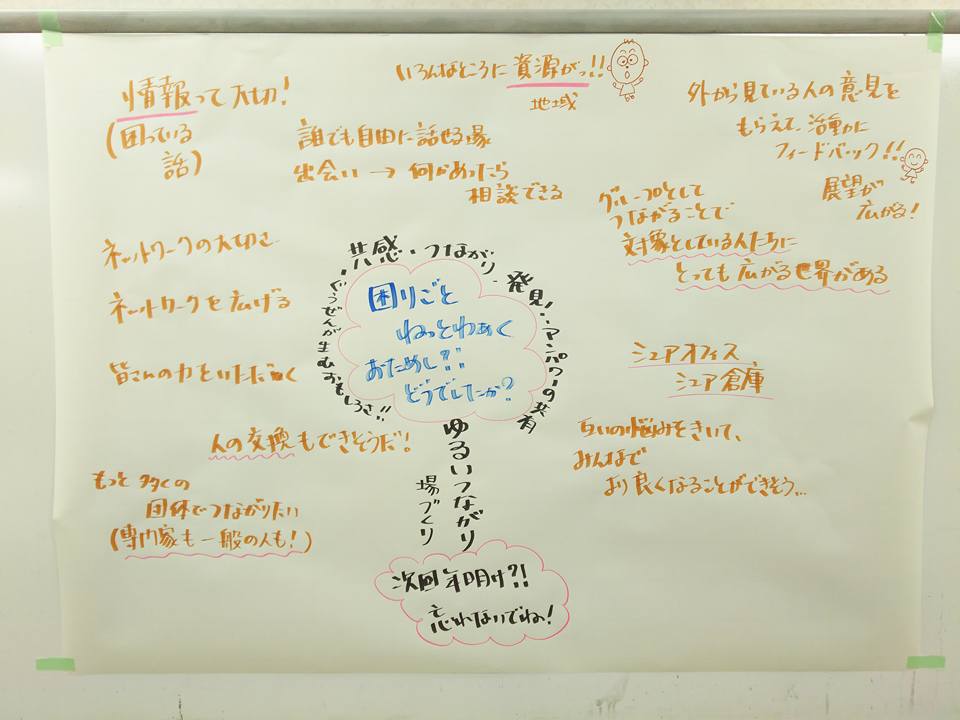 情報って大切！
（困っている
話）
いろんなところに資源がっ!!
地域
誰でも自由に話せる場
出会い → 何かあったら
相談できる
外から見ている人の意見を
もらえて、活動に
フィードバック!!
展望が
広がる！
グループとして
つながることで
対象としている人たちに
とっても広がる世界がある
ネットワークの大切さ
ネットワークを広げる
皆さんの力をいただく
人の交換もできそうだ！
もっと多くの
団体でつながりたい
（専門家も一般の人も！）
共感・つながり・発見！・マンパワーの共有
ぐうぜんが生むおもしろさ!!
困りごと
ねっとわぁく
おためし?!
どうでしたか？
ゆるいつながり
場づくり
シェアオフィス
シェア倉庫
互いの悩みをきいて、
みんなで
より良くなることができそう…
次回年明け?!
忘れないでね！